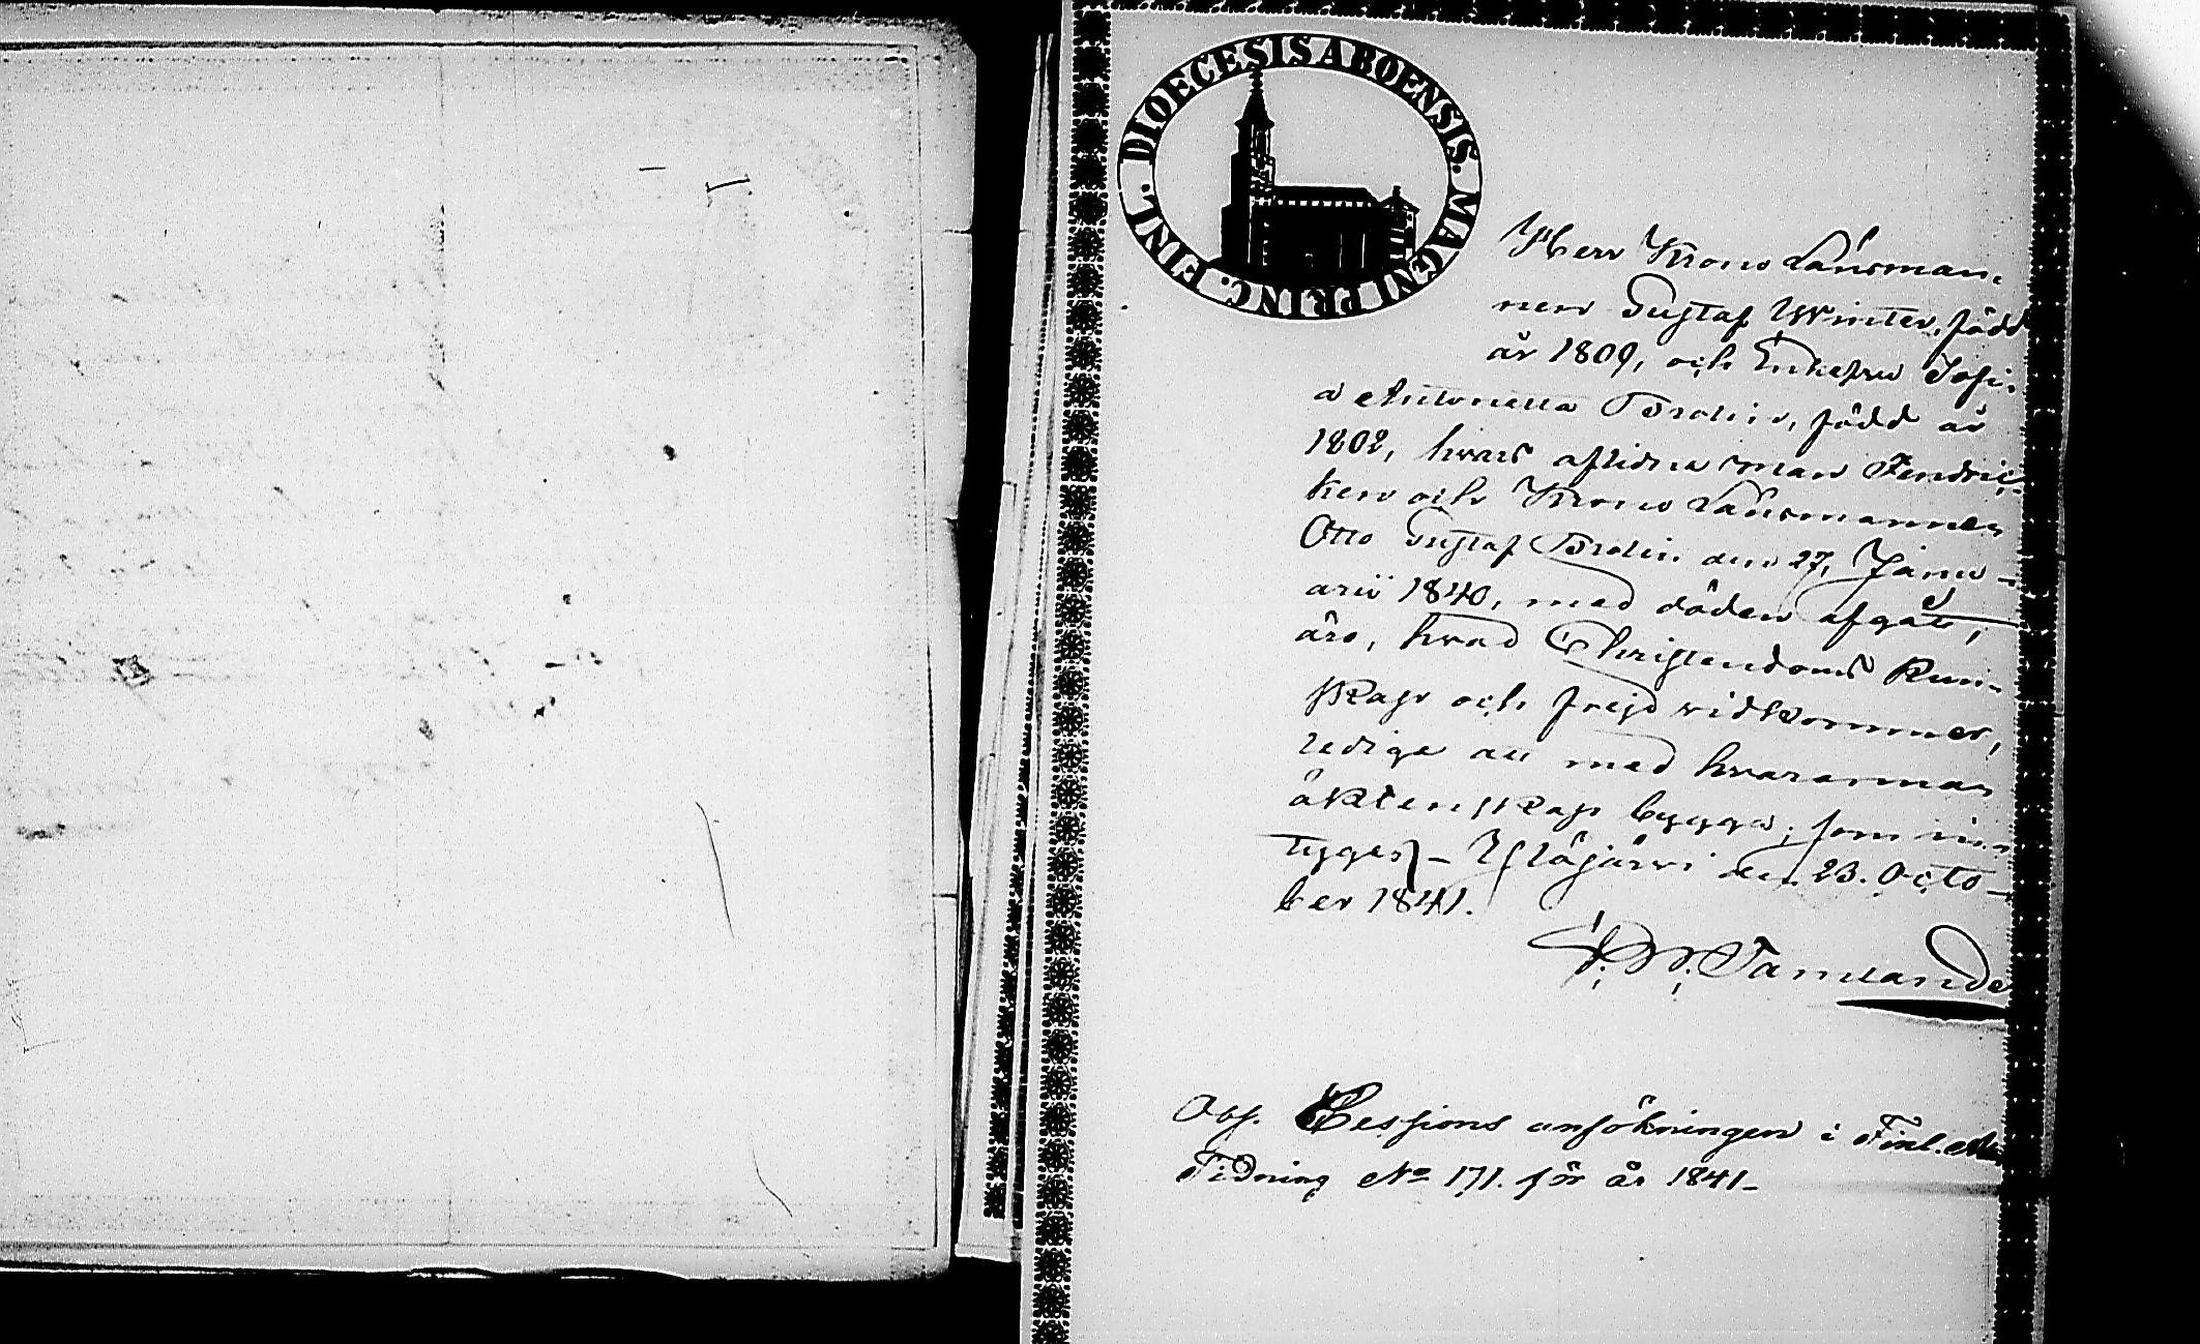 DIOECESIS ABOENSIS. MAGNI PRINC. FINL.
Herr Krono Länsman-
nen Gustaf Winter, född
år 1809, och Enkefru Sofi-
a Antonetta Brolin, född år
1802, hvars aflidna man Fendric-
ken och Krono Länsmannen
Otto Gustaf Brolin den 27, Janu-
arii 1840, med döden afgått,
äro, hvad Christendoms kun-
skap och frejd vidkommer,
ledige att med hvarannan
äktenskap bygga; som in-
tygges - Ylöjärvi den 23. Octo-
ber 1841.
Obs. Cessions ansökningen i Finl. Alm.
Tidning No 171. för år 1841-